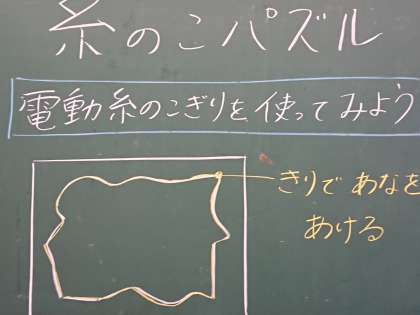 糸のこパズル
電動糸のこぎりを使ってみよう
きりであなを
あける